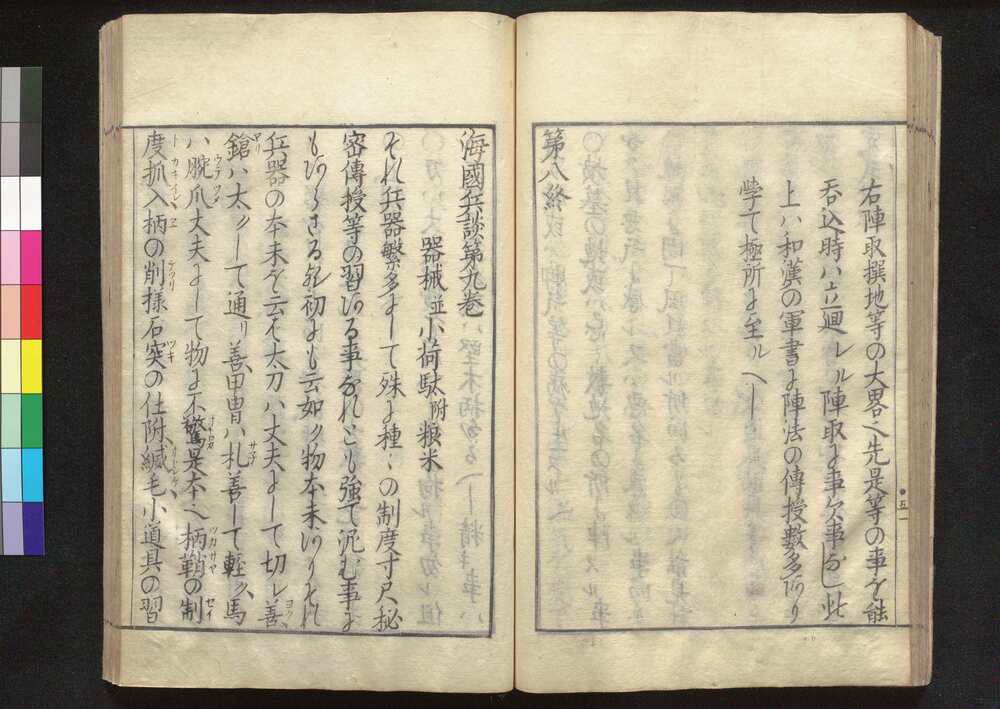 右陣取撰地等の大畧也先是等の事を能
呑込時ハ立廻レル陣取に事欠事なし此
上ハ和漢の軍書に陣法の傳授数多あり
學て極所に至ルヘし
第八終
海國兵談第九巻
器械並小荷駄附粮米
それ兵器繁多にして殊に種々の制度寸尺秘
密傳授等の習ある事なれとも強て泥む事に
もあらさる歟初にも云如ク物本末ありそれ
兵器の本末を云ハ太刀ハ丈夫にして切レ善
鎗ハ太クして通リ善甲冑ハ札善して軽ク馬
ハ腕爪丈夫にして物に不驚是本也柄鞘の制
度抓入柄の削様石突の仕附緘毛小道具の習